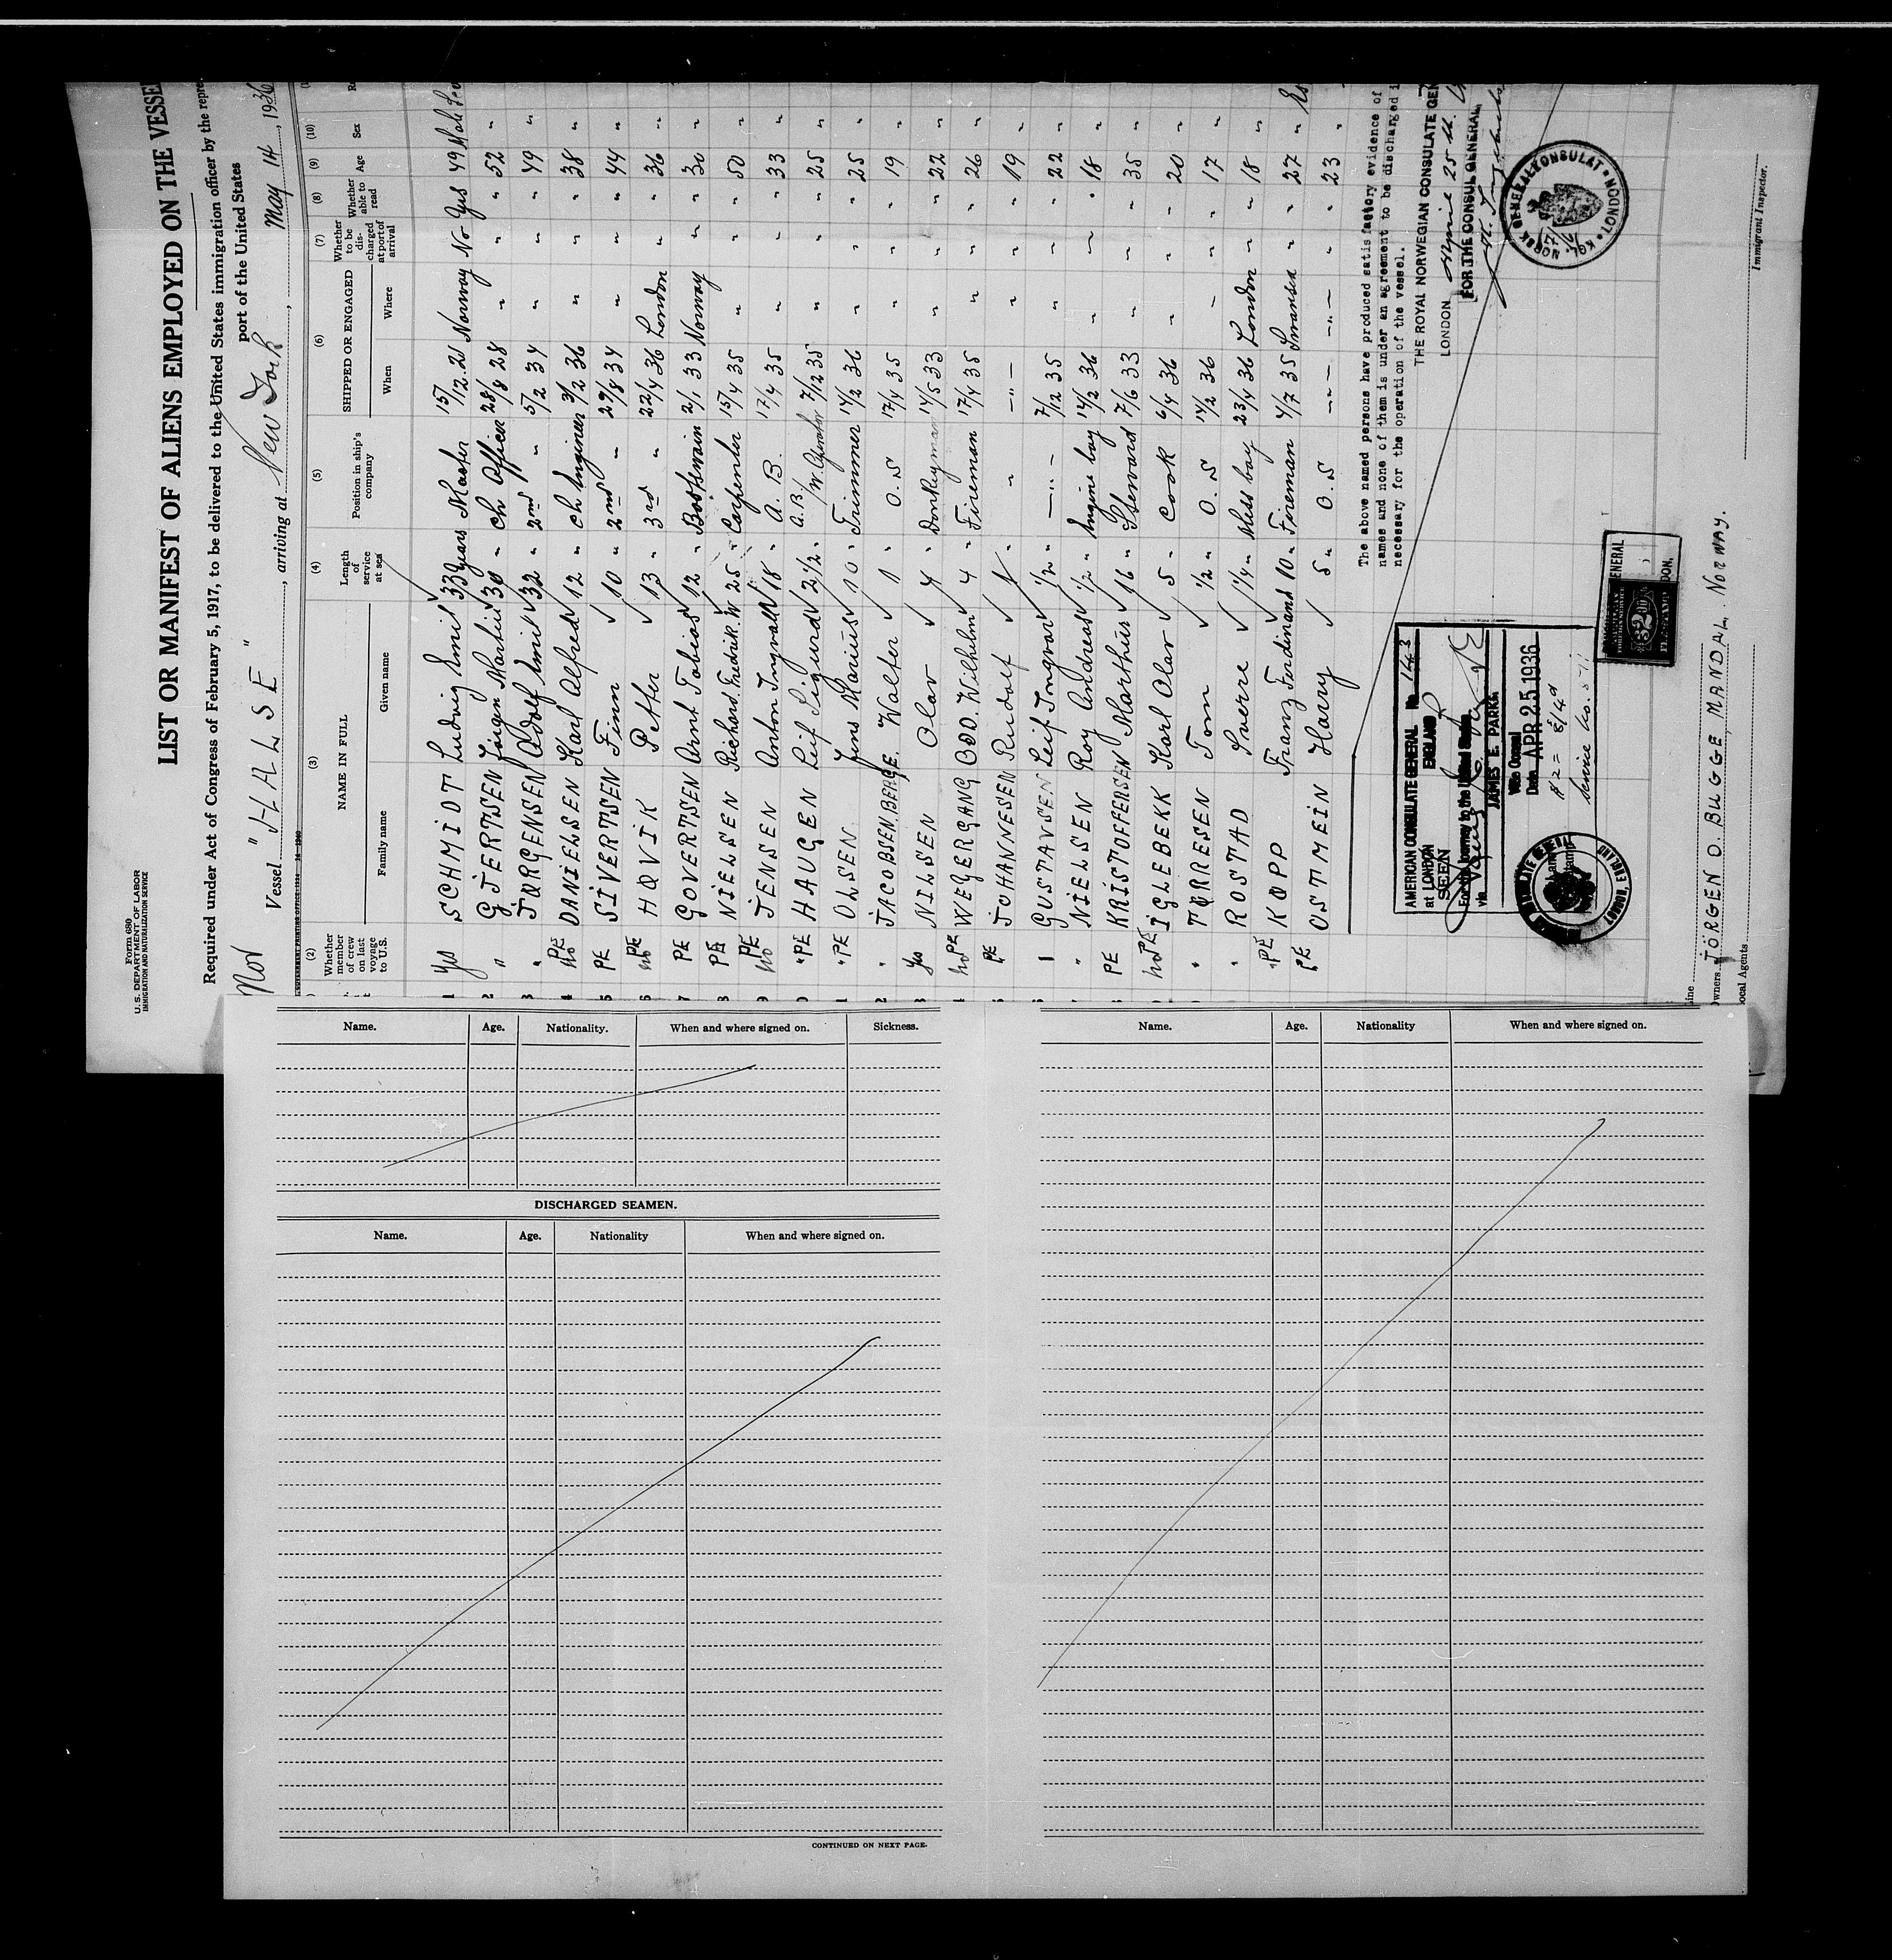 Form 680
U.S. DEPARTMENT OF LABOR
IMMIGRATION AND NATURALIZATION SERVICE
LIST OR MANIFEST OF ALIENS EMPLOYED ON THE VESSE
Required under Act of Congress of February 5, 1917, to be delivered to the United States immigration officer by the repre
port of the United States
Nor
Vessel "HALSE", arriving at New York, May 14, 1936
(2) (3) (4) (5) (6) (7) (8) (9) (10)
Whether member of crew on last voyage to U.S. NAME IN FULL Length of service at sea Position in ship's company SHIPPED OR ENGAGED Whether to be discharged at port of arrival Whether able to read Age Sex R
Family name Given name When Where
1 Yes SCHMIDT Ludvig Emil 33 years Master 15/12.21 Norway No Yes 49 Male
2 " GJERTSEN Jörgen Martin 30 " Ch Officer 28/8 28 " " " 52 "
3 " JØRGENSEN Adolf Emil 32 " 2nd " 5/2 34 " " " 49 "
4 PE no DANIELSEN Karl Alfred 12 " Ch Engineer 3/2 36 " " " 38 "
5 PE SIVERTSEN Finn 10 " 2nd " 29/8 34 " " " 44 "
6 PE no HØVIK Petter 13 " 3rd " 22/4 36 London " " 36 "
7 PE GOVERTSEN Arnt Tobias 12 " Bootswain 2/1 33 Norway " " 30 "
8 PE NIELSEN Richard. Fredrik. W 25 " Carpenter 15/4 35 " " " 50 "
9 PE no JENSEN Anton Ingvall 18 " A. B. 17/4 35 " " " 33 "
0 " PE HAUGEN Leif Sigurd 2 1/2 " A.B./W. Operator 7/12 35 " " " 25 "
1 " PE OLSEN Jens Marius 10 " Trimmer 14/2 36 " " " 25 "
2 " JACOBSEN.BERGE. Walter 1 " O.S 17/4 35 " " " 19 "
3 Yes NILSEN Olav 4 " Donkeyman 14/5 33 " " " 22 "
4 no PE WEGERGANG ODD. Wilhelm 4 " Fireman 17/4 35 " " " 26 "
5 PE JOHANNESEN Rudolf 1 " " —"— " " " 19 "
6 GUSTAVSEN Leif Ingvar 1/2 " —"— 7/12 35 " " " 22 "
7 " NIELSEN Roy Andreas 1/2 " Engine boy 14/2 36 " " " 18 "
8 PE KRISTOFFERSEN Marthius 16 " Steward 7/6 33 " " " 35 "
no PE IGLEBEKK Karl Olav 5 " Cook 6/4 36 " " " 20 "
" TØRRESEN Tom 1/2 " O.S 14/2 36 " " " 17 "
" ROSTAD Sverre 1 1/4 " Mess boy 23/4 36 London " " 18 "
" PE KOPP Franz Ferdinand 10 " Fireman 4/7 35 Swansea " " 27 "
PE " OSTMEIN Harry 5 " O.S —"— —"— " " 23 "
The above named persons have produced satisfactory evidence of
names and none of them is under an agreement to be discharged i
necessary for the operation of the vessel.
THE ROYAL NORWEGIAN CONSULATE GEN
LONDON April 25th
FOR THE CONSUL GENERAL
KGL. NORSK GENERALKONSULAT • LONDON •
AMERICAN CONSULATE GENERAL No 143
at LONDON ENGLAND
SEEN
For the journey to the United States
via
JAMES E. PARKS
Vice Consul
Date APR 25 1936
Service No. 511
LONDON, ENGLAND
$2.00
FEE STAMP
ine
wners JÖRGEN O. BUGGE, MANDAL. NORWAY.
ocal Agents
Immigrant Inspector.
Name. Age. Nationality. When and where signed on. Sickness.
DISCHARGED SEAMEN.
Name. Age. Nationality When and where signed on.
CONTINUED ON NEXT PAGE.
Name. Age. Nationality When and where signed on.